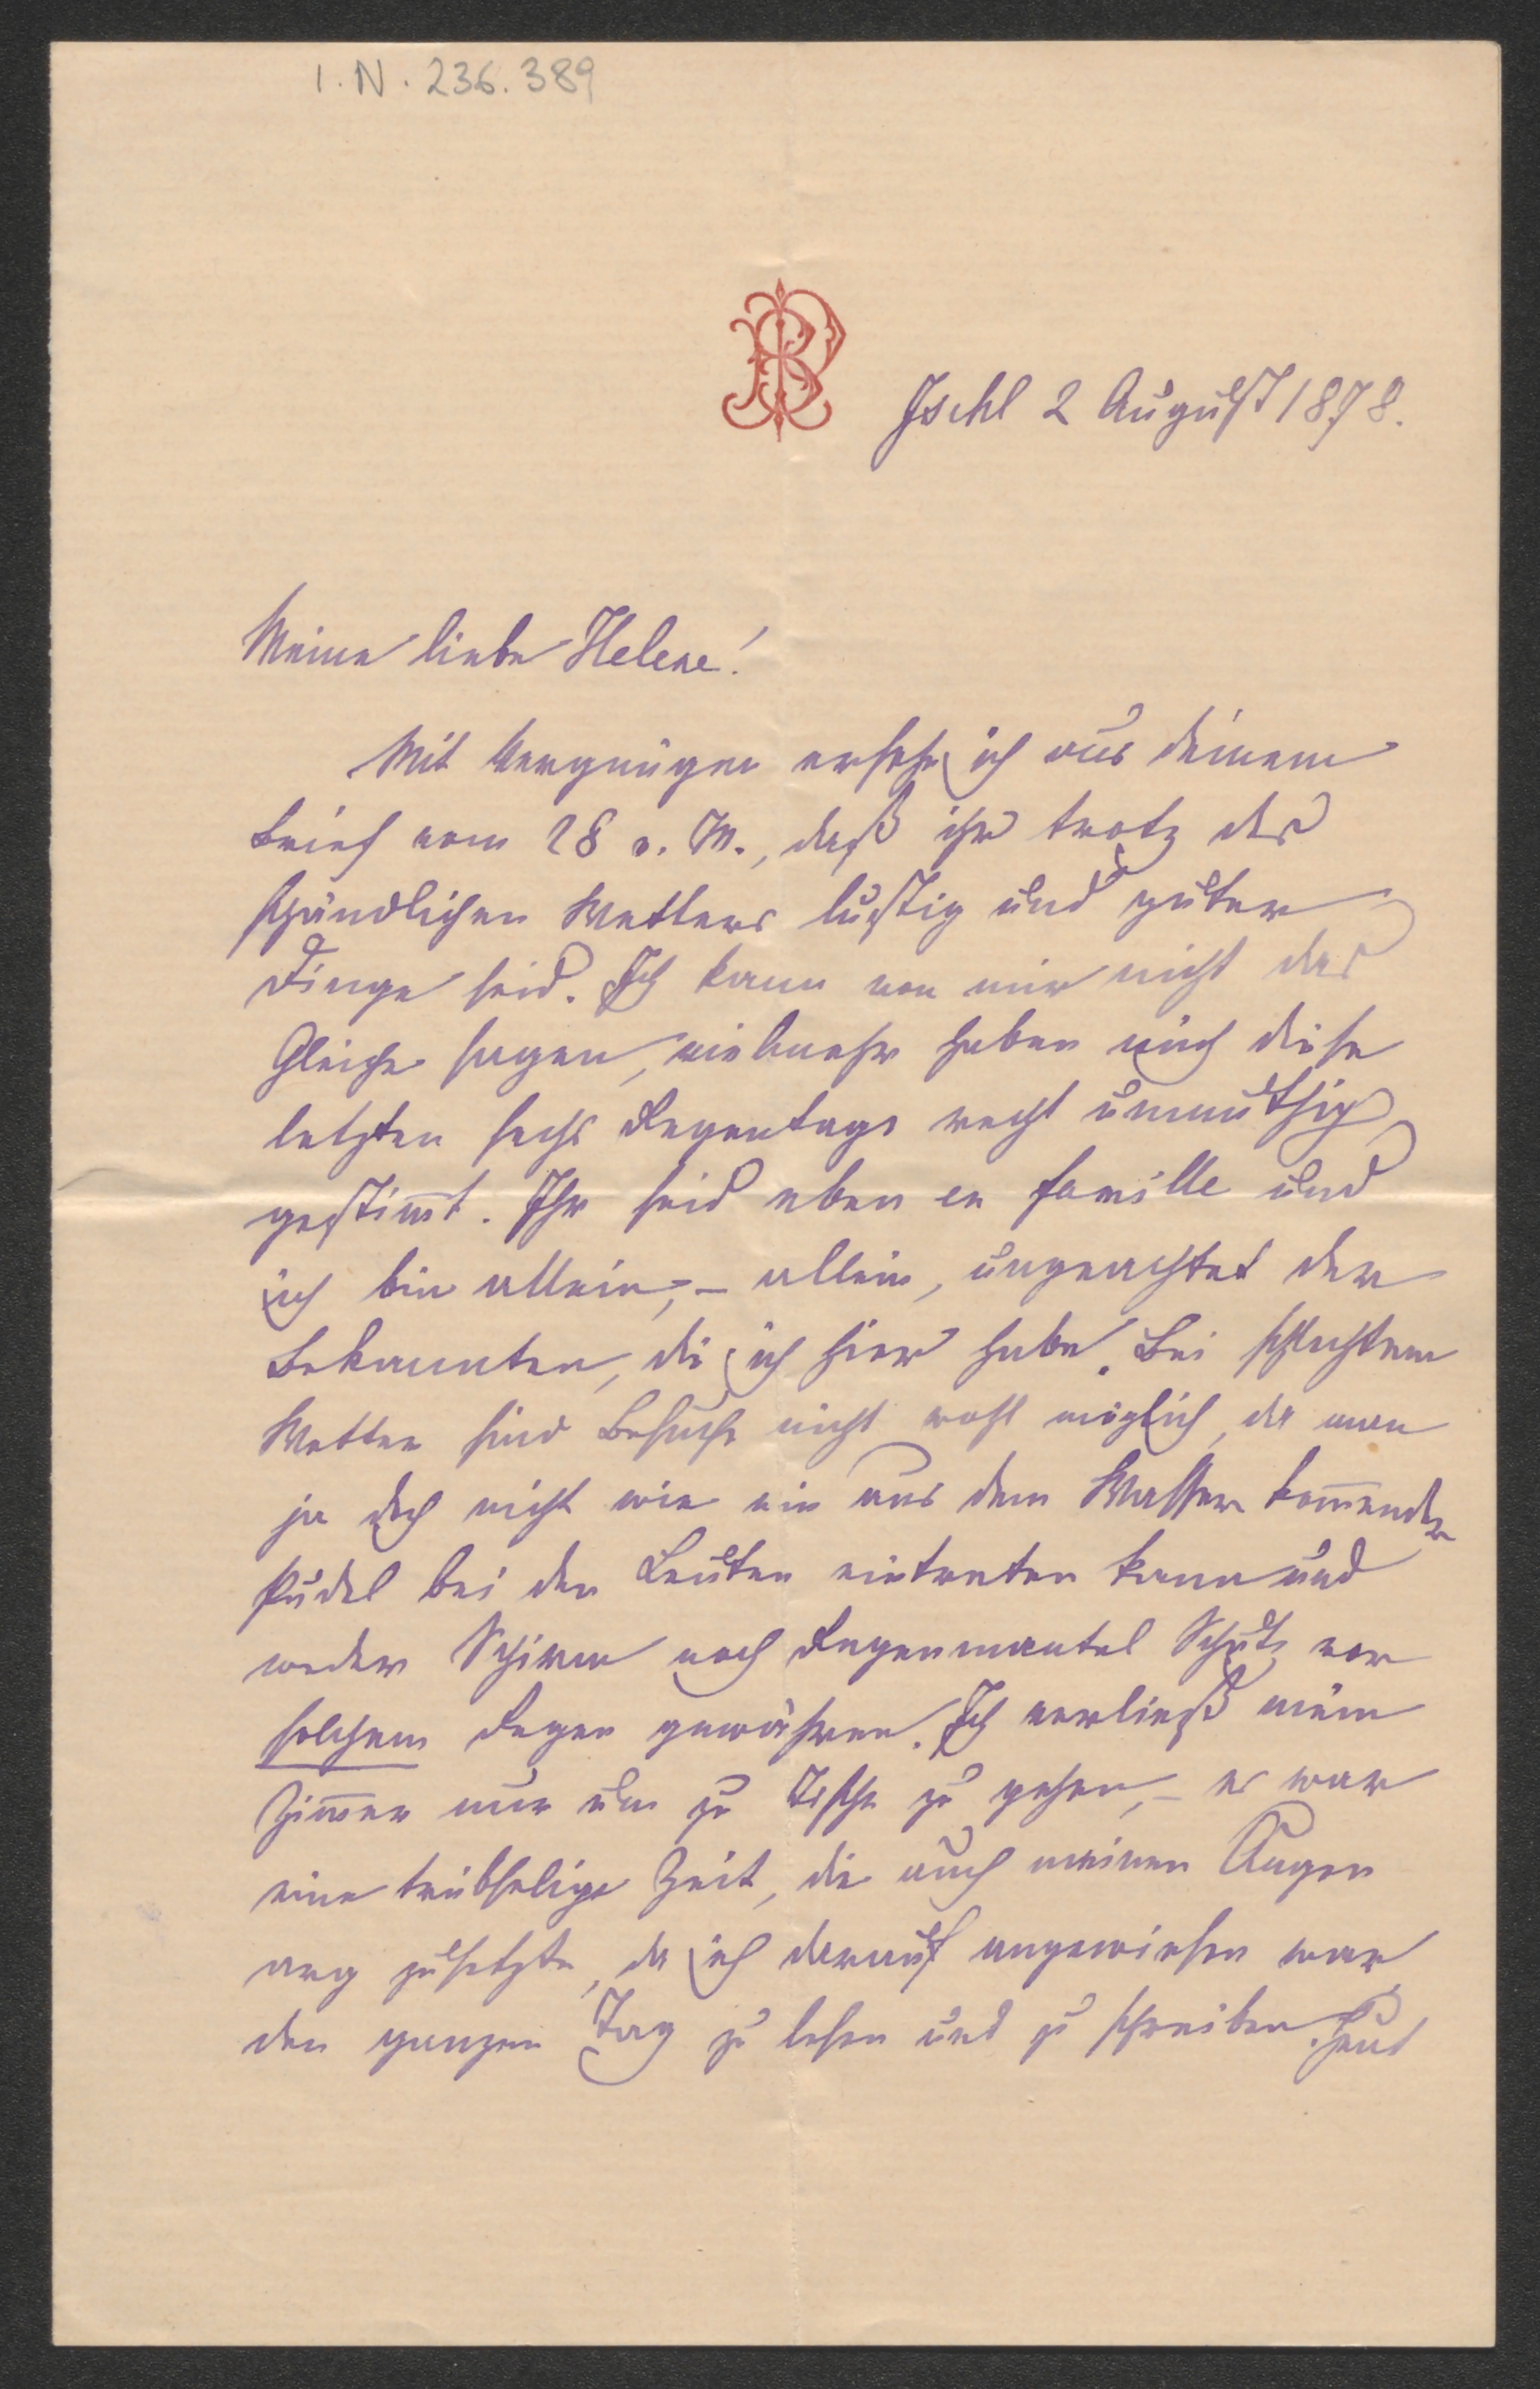 I. N. 236.389
Ischl 2 August 1878.
Meine liebe Helene!
Mit Vergnügen ersehe ich aus deinem
Brief vom 28 v. M., daß ihr trotz des
schändlichen Wetters lustig und guter
Dinge seid. Ich kann von mir nicht das
Gleiche sagen, vielmehr haben mich diese
letzten sechs Regentage recht unmuthig
gestim̅t. Ihr seid eben en famille und
ich bin allein, – allein, ungeachtet der
Bekannten, die ich hier habe. Bei schlechtem
Wetter sind Besuche nicht wohl möglich, da man
ja doch nicht wie ein aus dem Wasser kom̅ender
Pudel bei den Leuten eintreten kann und
weder Schirm noch Regenmantel Schutz vor
solchem Regen gewähren. Ich verließ mein
Zim̅er nur um zu Tische zu gehen, – es war
eine trübselige Zeit, die auch meinen Augen
arg zusetzte, da ich darauf angewiesen war
den ganzen Tag zu lesen und zu schreiben. Heut